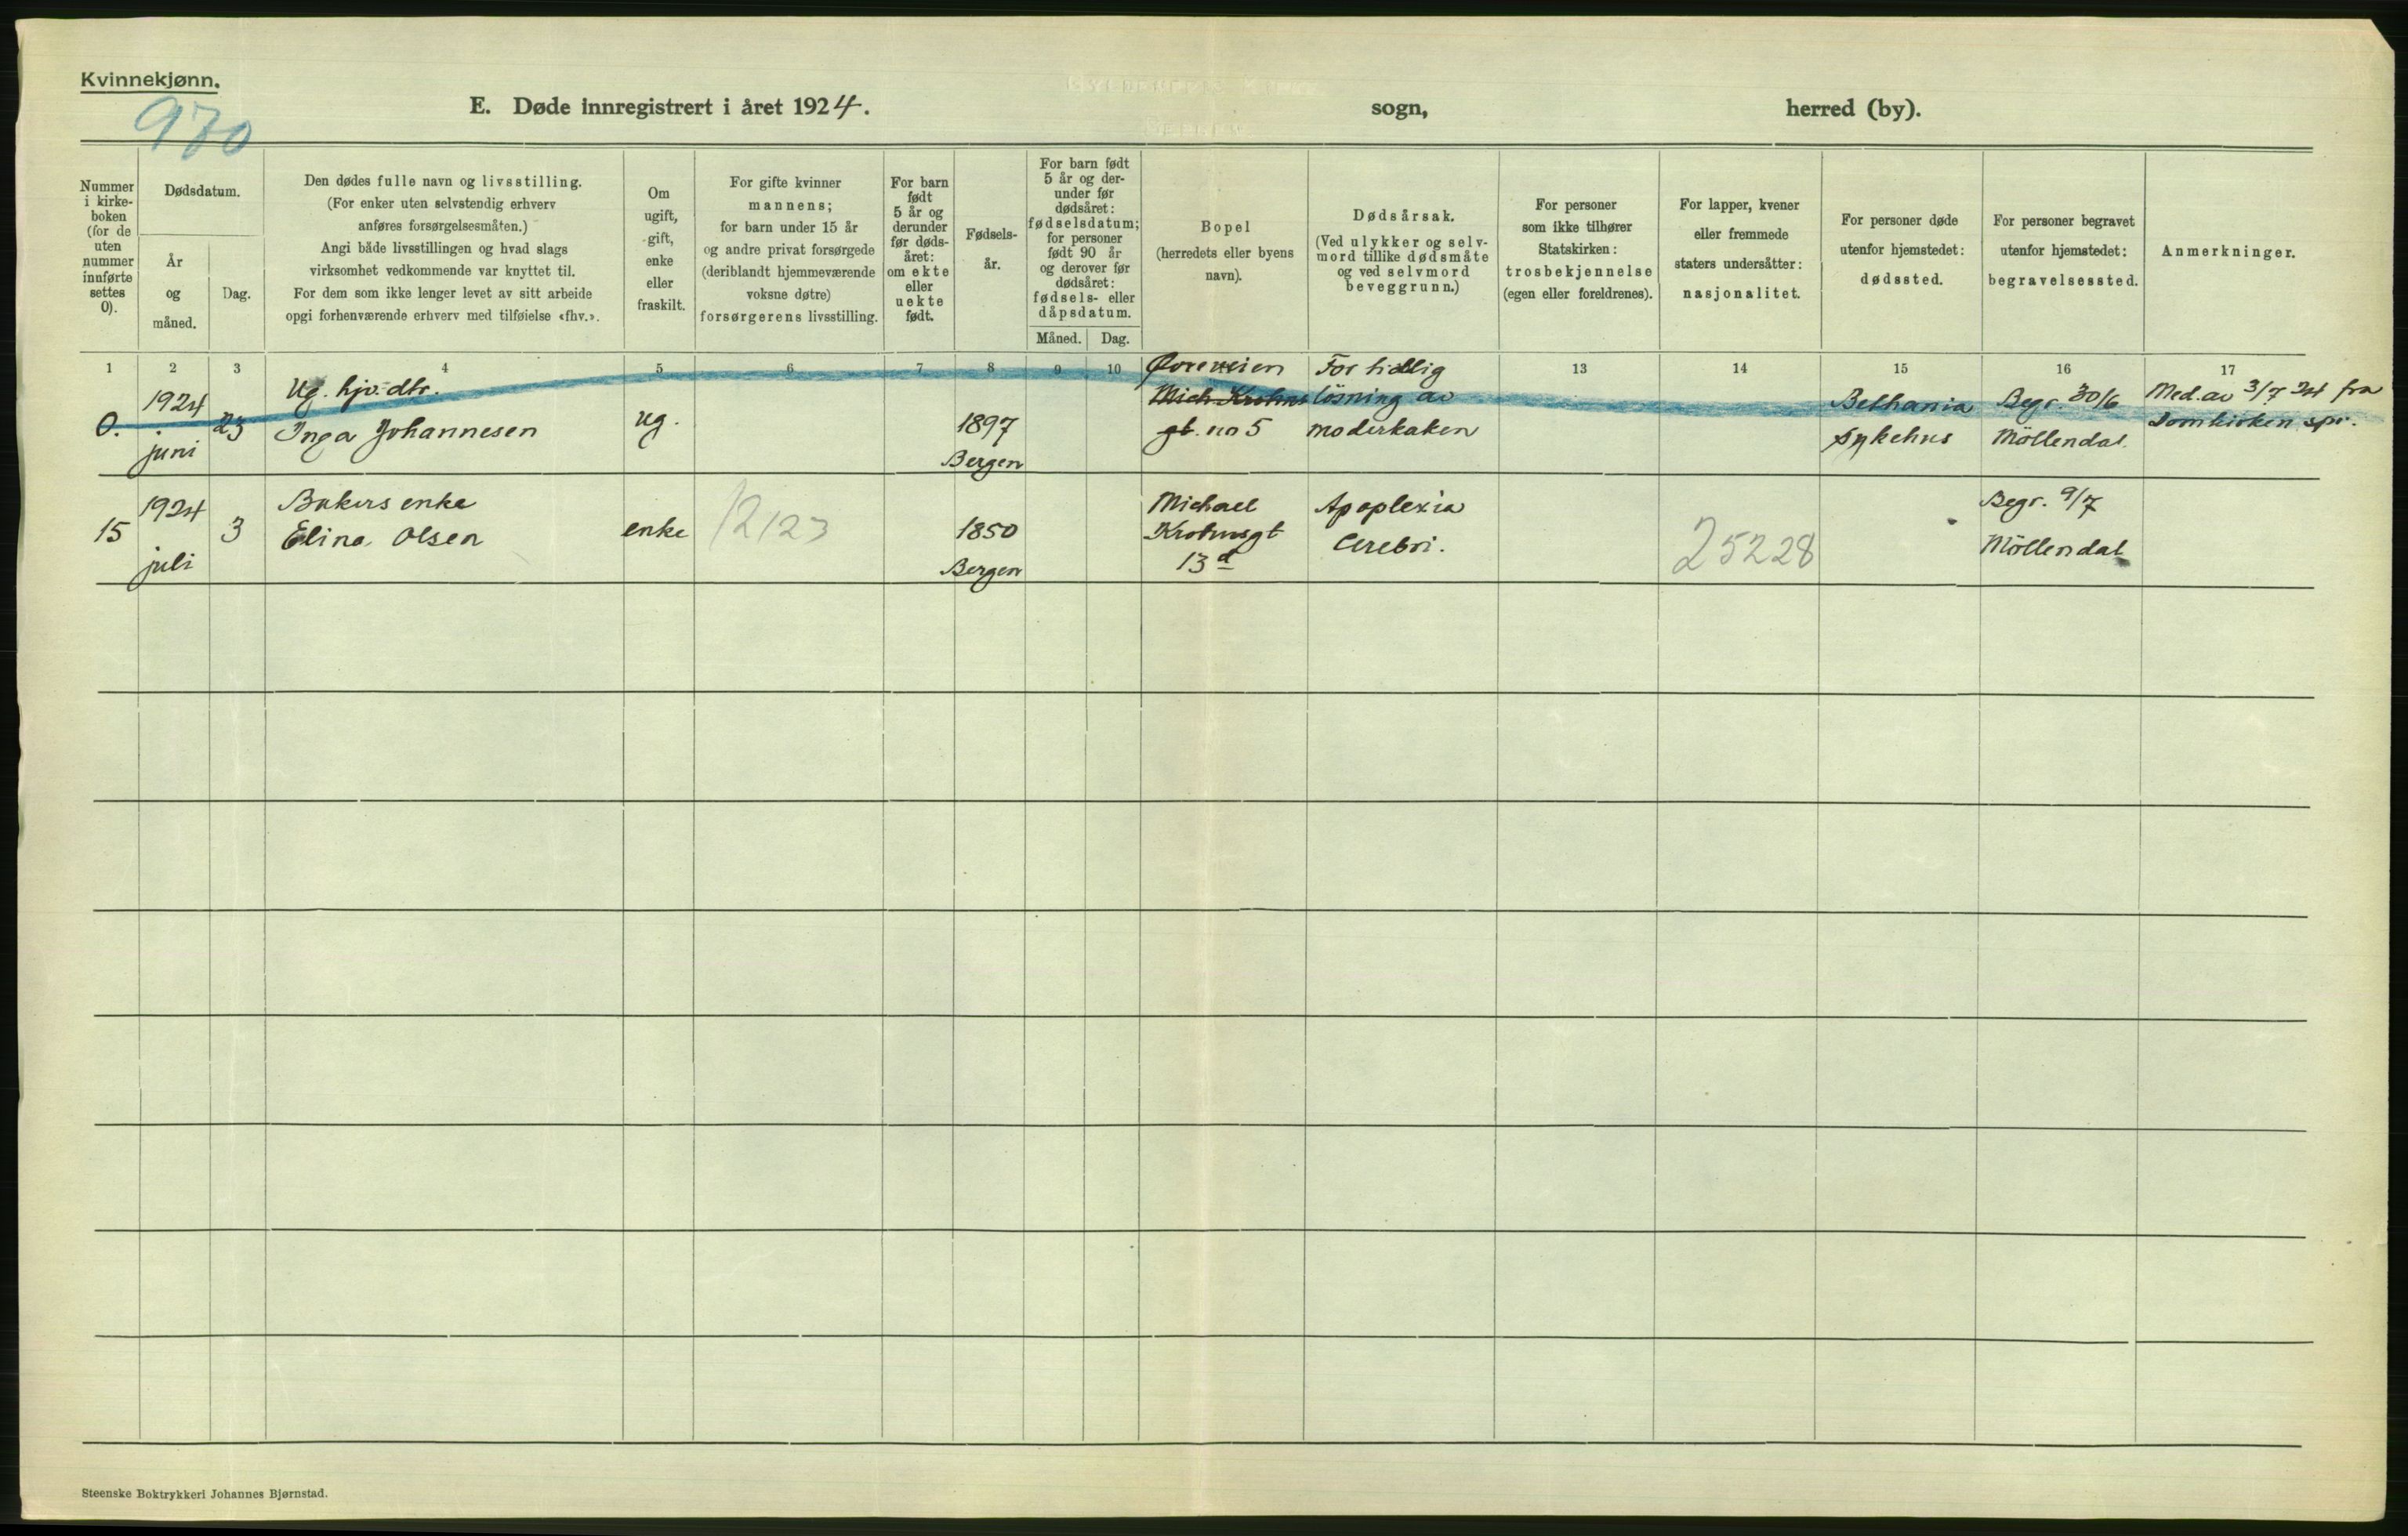 Kvinnekjønn.
970
E. Døde innregistrert i året 1924. sogn, herred (by).
Nummer
i kirke-
boken
(for de
uten
nummer
innførte
settes
0).
Dødsdatum.
År
og
måned.
Dag.
Den dødes fulle navn og livsstilling.
(For enker uten selvstendig erhverv
anføres forsørgelsesmåten.)
Angi både livsstillingen og hvad slags
virksomhet vedkommende var knyttet til.
For dem som ikke lenger levet av sitt arbeide
opgi forhenværende erhverv med tilføielse «fhv.».
Om
ugift,
gift,
enke
eller
fraskilt.
For gifte kvinner
mannens;
for barn under 15 år
og andre privat forsørgede
(deriblandt hjemmeværende
voksne døtre)
forsørgerens livsstilling.
For barn
født
5 år og
derunder
før døds-
året:
om ekte
eller
uekte
født.
Fødsels-
år.
For barn født
5 år og der-
under før
dødsåret:
fødselsdatum;
for personer
født 90 år
og derover før
dødsåret:
fødsels- eller
dåpsdatum.
Måned. Dag.
Bopel
(herredets eller byens
navn).
Dødsårsak.
(Ved ulykker og selv-
mord tillike dødsmåte
og ved selvmord
beveggrunn.)
For personer
som ikke tilhører
Statskirken:
trosbekjennelse
(egen eller foreldrenes).
For lapper, kvener
eller fremmede
staters undersåtter:
nasjonalitet.
For personer døde
utenfor hjemstedet:
dødssted.
For personer begravet
utenfor hjemstedet:
begravelsessted.
Anmerkninger.
1 2 3 4 5 6 7 8 9 10 13 14 15 16 17
0.
1924
juni
23
Ug. hjv. dtr.
Inga Johannesen
ug.
1897
Bergen
Øvreveien
Mich. Krohns
gt. no 5
For tidlig
lösning av
moderkaken
Bethania
Sykehus
Begr. 30/6
Möllendal.
Med. av 3/7 24 fra
Domkirken spr.
15
1924
juli
3
Bakers enke
Elina Olsen
enke
12123
1850
Bergen
Michael
Krohnsgt
13 d
Apoplexia
Cerebri.
25228
Begr. 9/7
Möllendal
Steenske Boktrykkeri Johannes Bjørnstad.